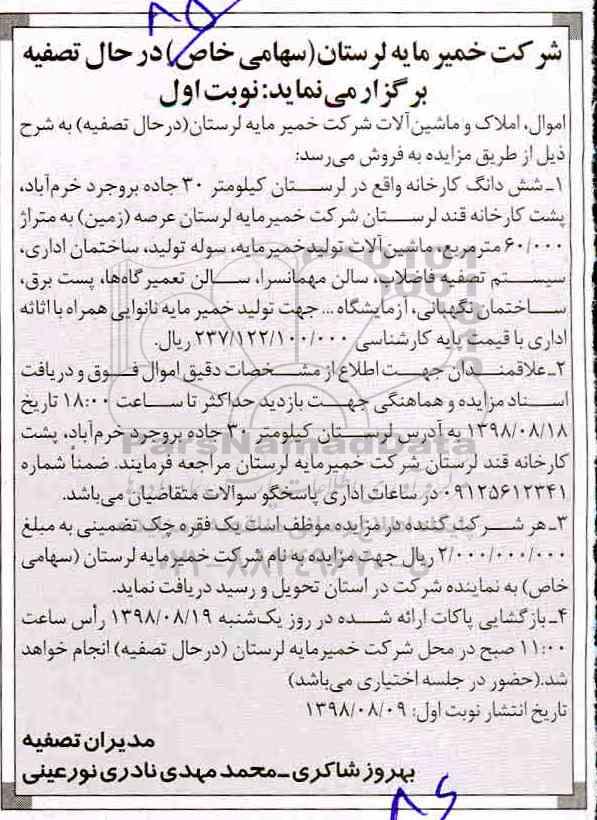 شرکت خمیر مایه لرستان(سهامی خاص) در حال تصفیه
برگزار می‌نماید: نوبت اول
اموال، املاک و ماشین‌آلات شرکت خمیر مایه لرستان(در حال تصفیه) به شرح
ذیل از طریق مزایده به فروش می‌رسد:
۱ـ شش دانگ کارخانه واقع در لرستان کیلومتر ۳۰ جاده بروجرد خرم‌آباد،
پشت کارخانه قند لرستان شرکت خمیرمایه لرستان عرصه (زمین) به متراژ
۶۰/۰۰۰ مترمربع، ماشین‌آلات تولیدخمیرمایه، سوله تولید، ساختمان اداری،
سیستم تصفیه فاضلاب، سالن مهمانسرا، سالن تعمیرگاه‌ها، پست برق،
ساختمان نگهبانی، آزمایشگاه ... جهت تولید خمیر مایه نانوایی همراه با اثاثه
اداری با قیمت پایه کارشناسی ۲۳۷/۱۲۲/۱۰۰/۰۰۰ ریال.
۲ـ علاقمندان جهت اطلاع از مشخصات دقیق اموال فوق و دریافت
اسناد مزایده و هماهنگی جهت بازدید حداکثر تا ساعت ۱۸:۰۰ تاریخ
۱۳۹۸/۰۸/۱۸ به آدرس لرستان کیلومتر ۳۰ جاده بروجرد خرم‌آباد، پشت
کارخانه قند لرستان شرکت خمیرمایه لرستان مراجعه فرمایند. ضمناً شماره
۰۹۱۲۵۶۱۲۳۴۱ در ساعات اداری پاسخگو سوالات متقاضیان می‌باشد.
۳ـ هر شرکت کننده در مزایده موظف است یک فقره چک تضمینی به مبلغ
۲/۰۰۰/۰۰۰/۰۰۰ ریال جهت مزایده به نام شرکت خمیر مایه لرستان (سهامی
خاص) به نماینده شرکت در استان تحویل و رسید دریافت نماید.
۴ـ بازگشایی پاکات ارائه شده در روز یک‌شنبه ۱۳۹۸/۰۸/۱۹ رأس ساعت
۱۱:۰۰ صبح در محل شرکت خمیرمایه لرستان (درحال تصفیه) انجام خواهد
شد.(حضور در جلسه اختیاری می‌باشد)
تاریخ انتشار نوبت اول: ۱۳۹۸/۰۸/۰۹
مدیران تصفیه
بهروز شاکری ـ محمد مهدی نادری نورعینی
ParsNamadData